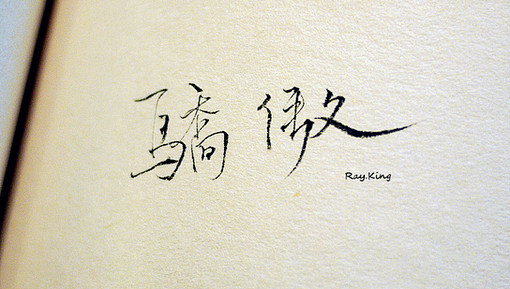 驕傲
Ray.King